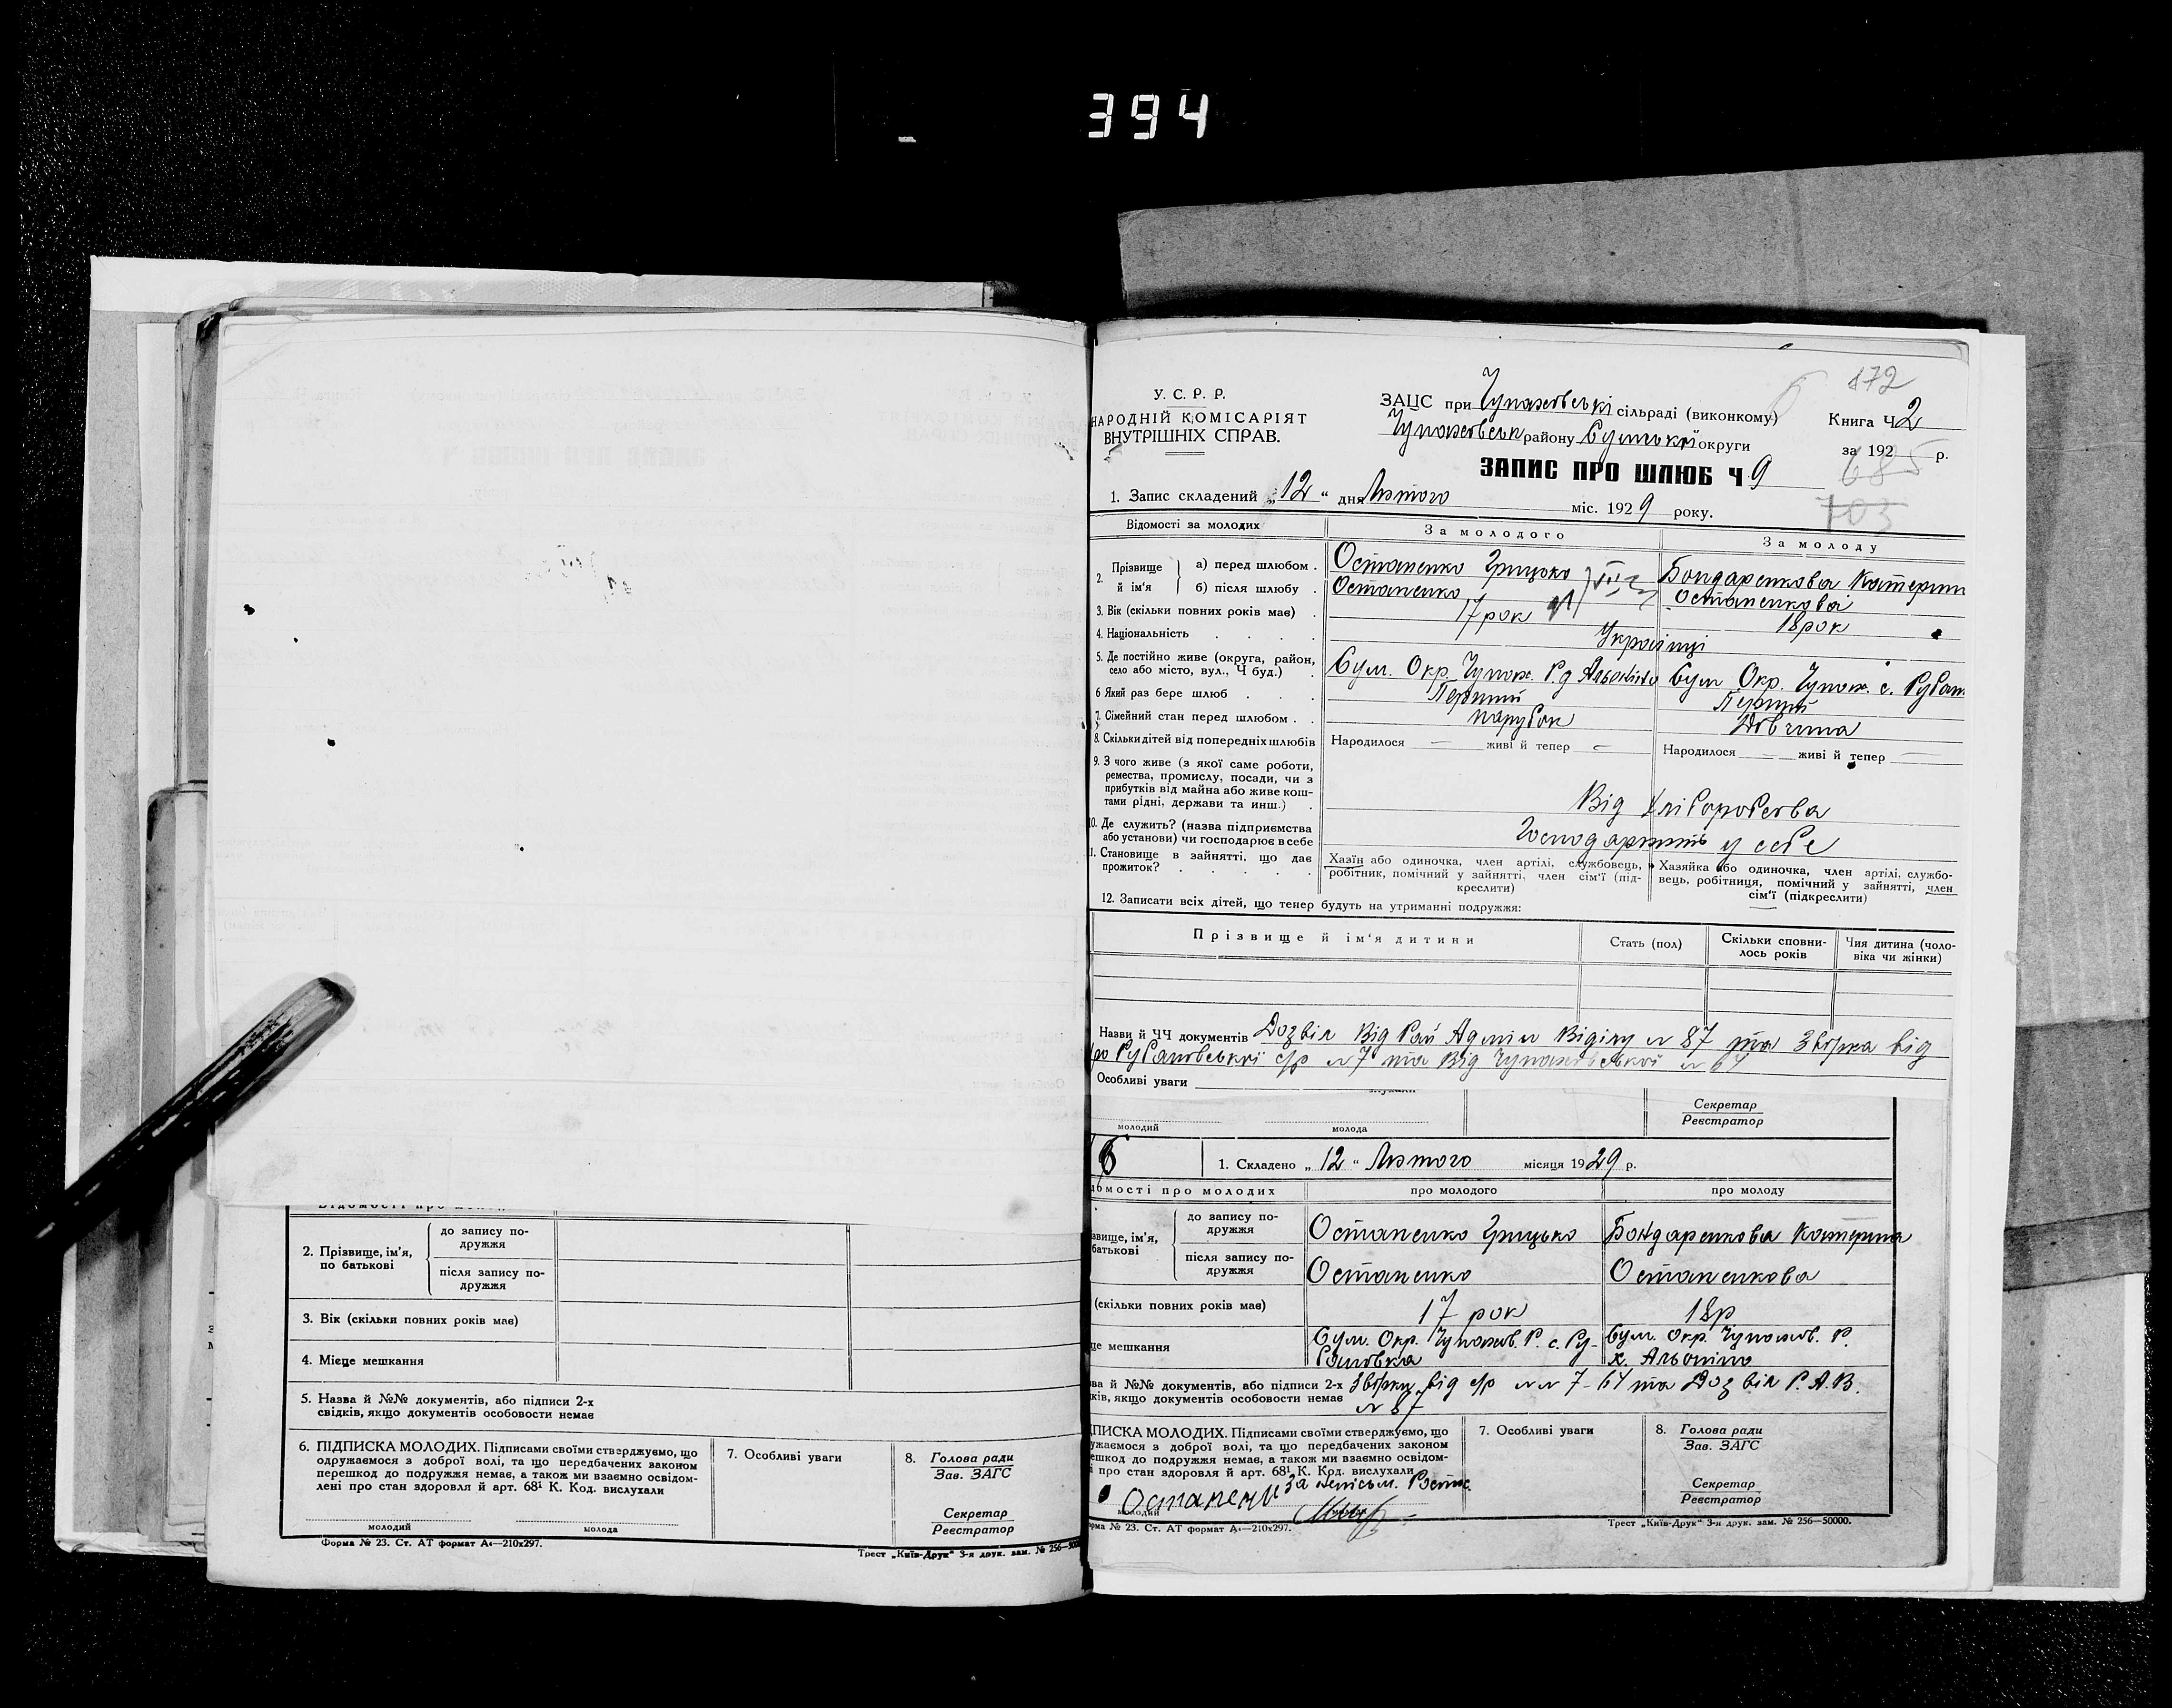 394
172
У. С. Р. Р.
НАРОДНІЙ КОМІСАРІЯТ
ВНУТРІШНІХ СПРАВ.
ЗАЦС при Чупахівські сільраді (виконкому)
Чупахівськ району Сумської округи
Книга Ч 2
за 192 р.
685
703
ЗАПИС ПРО ШЛЮБ Ч 9
1. Запис складений „12“ дня Лютого міс. 1929 року.
Відомості за молодих
За молодого
За молоду
2. Прізвище й ім'я
а) перед шлюбом .
Остапенко Грицько
Бондаренкова Катерин
б) після шлюбу .
Остапенко
Остапенкова
3. Вік (скільки повних років має) .
17 рок
18 рок
4. Національність . . . .
Українці
5. Де постійно живе (округа, район,
село або місто, вул., Ч буд.) .
Сум. Окр. Чупах.
Сум Окр. Чупах. с. Рубан.
6 Який раз бере шлюб . . .
Перший
Перший
7. Сімейний стан перед шлюбом . .
парубок
Дівчина
8. Скільки дітей від попередніх шлюбів
Народилося — живі й тепер —
Народилося — живі й тепер —
9. З чого живе (з якої саме роботи,
ремества, промислу, посади, чи з
прибутків від майна або живе кош-
тами рідні, держави та инш.) .
Від хліборобства
10. Де служить? (назва підприємства
або установи) чи господарює в себе
Господарюють у себе
1. Становище в зайнятті, що дає
прожиток? . . . . .
Хазїн або одиночка, член артілі, службовець,
робітник, помічний у зайнятті, член сім'ї (під-
креслити)
Хазяйка або одиночка, член артілі, службо-
вець, робітниця, помічний у зайнятті, член
сім'ї (підкреслити)
12. Записати всіх дітей, що тепер будуть на утриманні подружжя:
Прізвище й ім'я дитини
Стать (пол)
Скільки сповни-
лось років
Чия дитина (чоло-
віка чи жінки)
Назви й ЧЧ документів Дозвіл Від Рай Адмін Віділу № 87 та Звірка від
Рубанівської с/р № 7 та Від Чупахівської № 64
Особливі уваги
молодий
молода
Секретар
Реєстратор
6
1. Складено „12“ Лютого місяця 1929 р.
домості про молодих
про молодого
про молоду
звище, ім'я,
батькові
до запису по-
дружжя
Остапенко Грицько
Бондаренкова Катерина
після запису по-
дружжя
Остапенко
Остапенкова
(скільки повних років має)
17 рок
18р
це мешкання
Сум. Окр. Чупахів. Р. с. Ру-
бановка
Сум. Окр. Чупахів. Р.
х. Альошіно
ва й №№ документів, або підписи 2-х
ків, якщо документів особовости немає
Звірки від с/р №№ 7-64 та Дозвіл Р. А. В.
№ 87
ДПИСКА МОЛОДИХ. Підписами своїми стверджуємо, що
ужаємося з доброї волі, та що передбачених законом
ешкод до подружжя немає, а також ми взаємно освідом-
і про стан здоровля й арт. 68¹ К. Код. вислухали
за неписьм.
молодий
7. Особливі уваги
8. Голова ради
Зав. ЗАГС
Секретар
Реєстратор
рма № 23. Ст. АТ формат А₄—210х297.
Трест „Київ-Друк“ 3-я друк. зам. № 256—50000.
2. Прізвище, ім'я,
по батькові
до запису по-
дружжя
після запису по-
дружжя
3. Вік (скільки повних років має)
4. Місце мешкання
5. Назва й №№ документів, або підписи 2-х
свідків, якщо документів особовости немає
6. ПІДПИСКА МОЛОДИХ. Підписами своїми стверджуємо, що
одружаємося з доброї волі, та що передбачених законом
перешкод до подружжя немає, а також ми взаємно освідом-
лені про стан здоровля й арт. 68¹ К. Код. вислухали
молодий
молода
7. Особливі уваги
8. Голова ради
Зав. ЗАГС
Секретар
Реєстратор
Форма № 23. Ст. АТ формат А₄—210х297.
Трест „Київ-Друк“ 3-я друк. зам. № 256—500